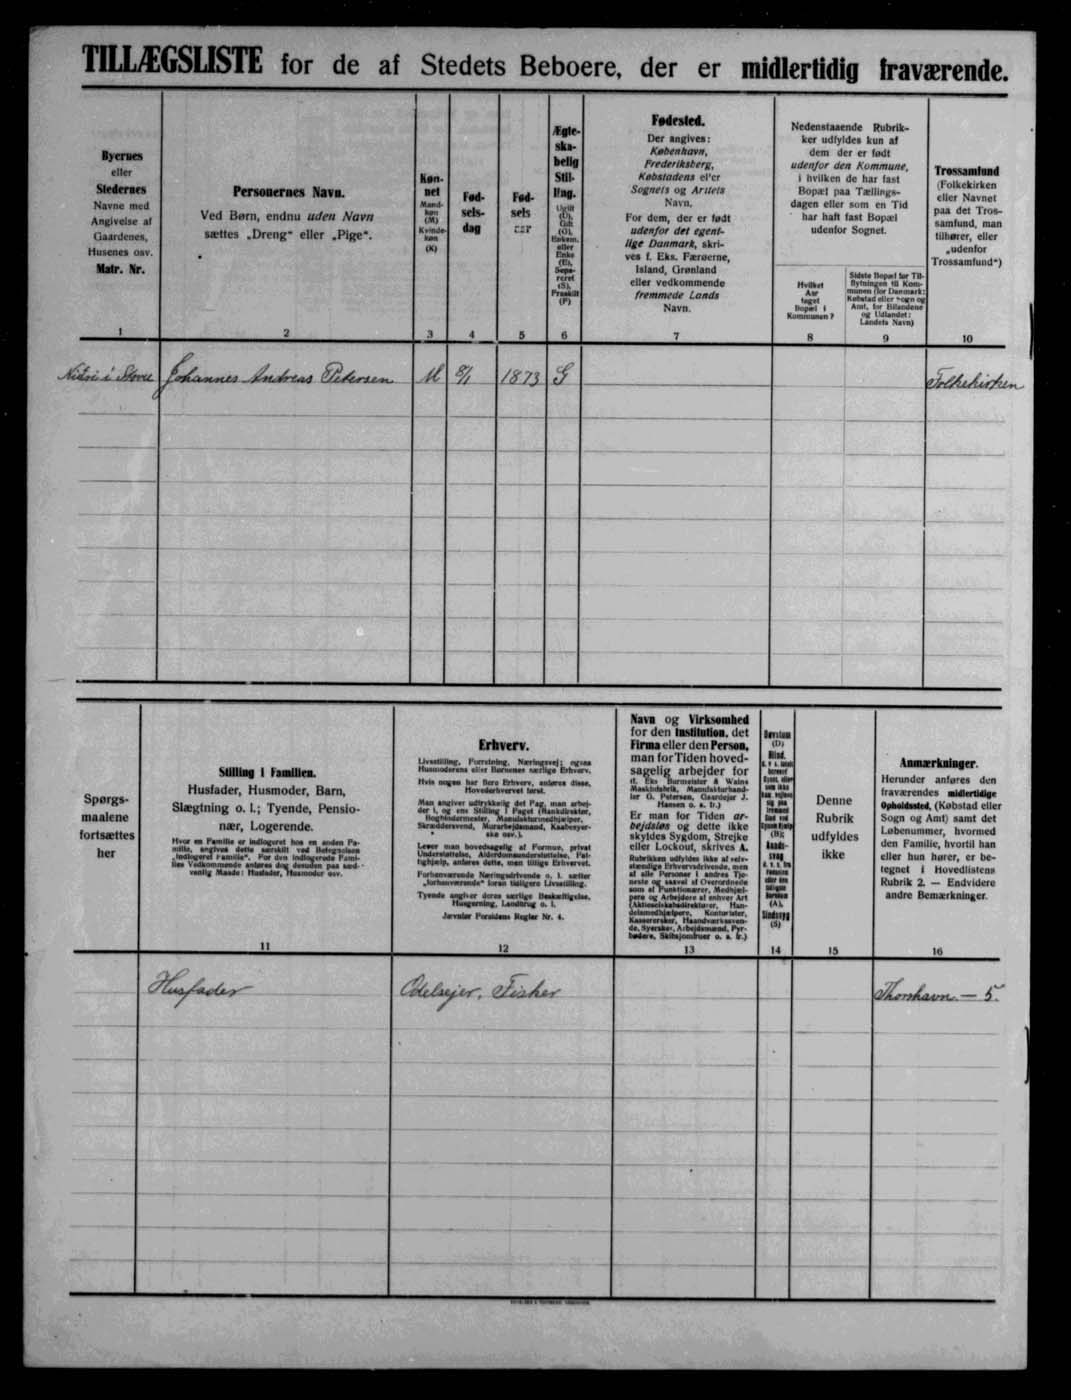 TILLÆGSLISTE for de af Stedets Beboere, der er midlertidig fraværende.
Byernes
eller
Stedernes
Navne med
Angivelse af
Gaardenes,
Husenes osv.
Matr. Nr.
1
Personernes Navn.
Ved Børn, endnu uden Navn
sættes „Dreng“ eller „Pige“.
2
Køn-
net
Mand-
køn
(M)
Kvinde-
køn
(K)
3
Fød-
sels-
dag
4
Fød-
sels
aar
5
Ægte-
ska-
belig
Stil-
ling.
Ugift
(U),
Gift
(G),
Enkem.
eller
Enke
(E),
Sepa-
reret
(S),
Fraskilt
(F)
6
Fødested.
Der angives:
København,
Frederiksberg,
Købstadens eller
Sognets og Amtets
Navn.
For dem, der er født
udenfor det egent-
lige Danmark, skri-
ves f. Eks. Færøerne,
Island, Grønland
eller vedkommende
fremmede Lands
Navn.
7
Nedenstaaende Rubrik-
ker udfyldes kun af
dem der er født
udenfor den Kommune,
i hvilken de har fast
Bopæl paa Tællings-
dagen eller som en Tid
har haft fast Bopæl
udenfor Sognet.
Hvilket
Aar
taget
Bopæl i
Kommunen?
8
Sidste Bopæl før Til-
flytningen til Kom-
munen (for Danmark:
Købstad eller Sogn og
Amt, for Bilandene
og Udlandet:
Landets Navn)
9
Trossamfund
(Folkekirken
eller Navnet
paa det Tros-
samfund, man
tilhører, eller
„udenfor
Trossamfund“)
10
i Stove Johannes Andreas Petersen M 8/1 1873 G Folkekirken
Spørgs-
maalene
fortsættes
her
Stilling i Familien.
Husfader, Husmoder, Barn,
Slægtning o. l.; Tyende, Pensio-
nær, Logerende.
Hvor en Familie er indlogeret hos en anden Fa-
milie, angives dette særskilt ved Betegnelsen
„indlogeret Familie“. For den indlogerede Fami-
lies Vedkommende anføres dog desuden paa sæd-
vanlig Maade: Husfader, Husmoder osv.
11
Erhverv.
Livsstilling, Forretning, Næringsvej; ogsaa
Husmoderens eller Børnenes særlige Erhverv.
Hvis nogen har flere Erhverv, anføres disse,
Hovederhvervet først.
Man angiver udtrykkelig det Fag, man arbej-
der i, og ens Stilling i Faget (Bankdirektør,
Bogbindermester, Manufakturmedhjælper,
Skræddersvend, Murarbejdsmand, Kaabesyer-
ske osv.).
Lever man hovedsagelig af Formue, privat
Understøttelse, Alderdomsunderstøttelse, Fat-
tighjælp, anføres dette, men tillige Erhvervet.
Forhenværende Næringsdrivende o. l. sætter
„forhenværende“ foran tidligere Livsstilling.
Tyende angiver deres særlige Beskæftigelse,
Husgerning, Landbrug o. l.
Jævnfør Forsidens Regler Nr. 4.
12
Navn og Virksomhed
for den Institution, det
Firma eller den Person,
man for Tiden hoved-
sagelig arbejder for
(f. Eks Burmeister & Wains
Maskinfabrik, Manufakturhand-
ler G. Petersen, Gaardejer J.
Hansen o. s. fr.)
Er man for Tiden ar-
bejdsløs og dette ikke
skyldes Sygdom, Strejke
eller Lockout, skrives A.
Rubrikken udfyldes ikke af selv-
stændige Erhvervsdrivende, men
af alle Personer i andres Tje-
neste og saavel af Overordnede
som af Funktionærer, Medhjæl-
pere og Arbejdere af enhver Art
(Aktieselskabsdirektører, Han-
delsmedhjælpere, Kontorister,
Kassererskær, Haandværkssven-
de, Syersker, Arbejdsmænd, Fyr-
bødere, Skibsjomfruer o. s. fr.)
13
Døvstum
(D)
Blind,
Aands-
svag
(A),
Sindssyg
(S)
14
Denne
Rubrik
udfyldes
ikke
15
Anmærkninger.
Herunder anføres den
fraværendes midlertidige
Opholdssted, (Købstad eller
Sogn og Amt) samt det
Løbenummer, hvormed
den Familie, hvortil han
eller hun hører, er be-
tegnet i Hovedlistens
Rubrik 2. — Endvidere
andre Bemærkninger.
16
Husfader Odelsejer, Fisker Thorshavn. — 5.